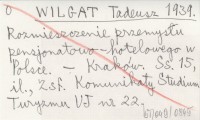 0 WILGAT Tadeusz 1939.
Rozmieszczenie przemysłu
pensjonatowo-hotelowego w
Polsce. – Kraków. Ss. 15,
il., z sf. Komunikaty Studium
Turyzmu UJ nr 22.